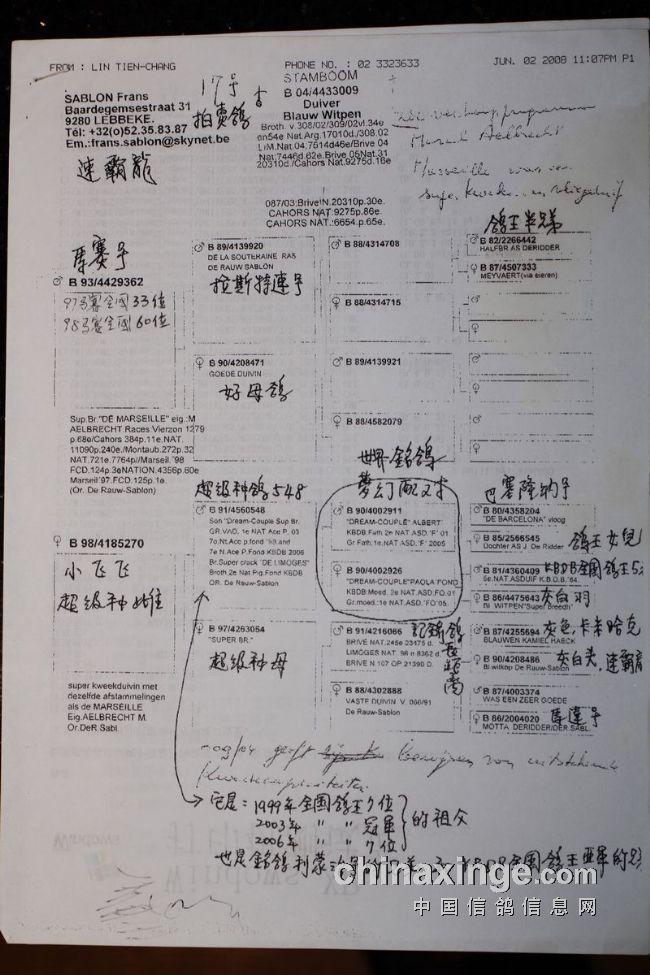 FROM : LIN TIEN-CHANG
PHONE NO. : 02 3323633
JUN. 02 2008 11:07PM P1
STAMBOOM
SABLON Frans
Baardegemsestraat 31
9280 LEBBEKE.
Tél: +32(0)52.35.83.87
Em.:frans.sablon@skynet.be
17号
拍賣鴿
連霸龍
B 04/4433009
Duiver
Blauw Witpen
Broth. v.308/02/309/02vl.34e
Nat.7446d.62e.Brive 05Nat.31
20310d./Cahors Nat.9275d.16e
087/03:Brive!N.20310p.30e.
CAHORS NAT:9275p.86e.
CAHORS NAT.:6654p.65e.
Marcel Aelbrecht
Marseille was een
馬賽号
♂ B 93/4429362
97马賽全國33位
98马賽全國60位
Sup.Br."DE MARSEILLE" eig.:M
AELBRECHT Races Vierzon 1279
p.68e/Cahors 384p.11e.NAT.
11090p.240e./Montaub.272p.32
NAT.721e.7764p//Marseil.'98
FCD.124p.3eNATION.4356p.60e
Marseil'97.FCD.125p.1e.
(Or. De Rauw-Sablon)
♂ B 89/4139920
DE LA SOUTERAINE RAS
DE RAUW SABLON
拉斯特連号
♀ B 90/4208471
GOEDE DUIVIN
好母鴿
♂ B 88/4314708
♀ B 88/4314715
♂ B 89/4139921
♀ B 88/4582079
鴿王半兄弟
♂ B 82/2266442
HALFBR AS DERIDDER
♀ B 87/4507333
MEYVAERT(via eieren)
♂
♀
♂
♀
♂
♀
♀ B 98/4185270
小飞飞
超级种雌
super kweekduivin met
dezelfde afstammelingen
als de MARSEILLE
Eig.AELBRECHT M.
Or.DeR.Sabl.
超级种鴿548
♂ B 91/4560548
Son "Dream-Couple Sup Br.
GR.VAD. 1e NAT Ace P. 03
7e Nat Ace P.Fond KBDB 2006
Br.Super crack "DE LIMOGES"
Broth 2e Nat Pig.Fond KBDB
OR. De Rauw-Sablon
♀ B 97/4263054
"SUPER BR."
超级种母
世界銘鴿
夢幻配對
♂ B 90/4002911
"DREAM-COUPLE" ALBERT"
KBDB Fath 2e NAT.ASD.'F' 01
Gr.Fath.1e NAT.ASD.'F' 2005
♀ B 90/4002926
"DREAM-COUPLE"PAOLA FOND
KBDB Moed. 2e NAT.ASD.FO.01
Gr.moed.1e NAT.ASD.'FO'05.
♂ B 91/4216086
BRIVE NAT.245e 23475 d.
LIMOGES NAT. 98 n 8362 d.
BRIVE N.107 OP 21390 D.
♀ B 88/4302888
VASTE DUIVIN V. 066/91
De Rauw-Sablon
巴塞隆納号
♂ B 80/4358204
"DE BARCELONA" vloog
♀ B 85/2566545
Dochter AS J. De Ridder
鴿王女兒
♂ B 81/4360409
5e.NAT.ASDUIF K.B.D.B.'84
KBDB全國鴿王5位
♀ B 86/4475643
BI. WITPEN"Super Breech"
灰白羽
♂ B 87/4255694
BLAUWEN KAMIEL HAECK
灰色,卡米哈克
♀ B 90/4208486
Bl witkop De Rauw-Sablon
灰白头,連霸龍
♂ B 87/4003374
WAS EEN ZEER GOEDE
♀ B 66/2004020
MOTTA. DERIDDER/DER.SABL.
馬達号
→ 它是:1999年全國鴿王7位
2003年 〃 〃 冠軍
2006年 〃 〃 7位
的祖父
也是銘鴿利蒙治
全國鴿王亞軍的兄
chinaxinge.com
中国信鸽信息网